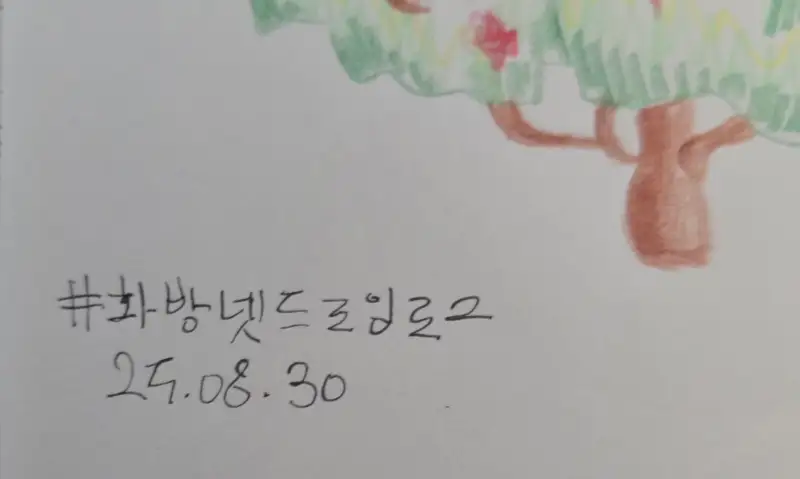 #화방넷드로잉로그
25.08.30